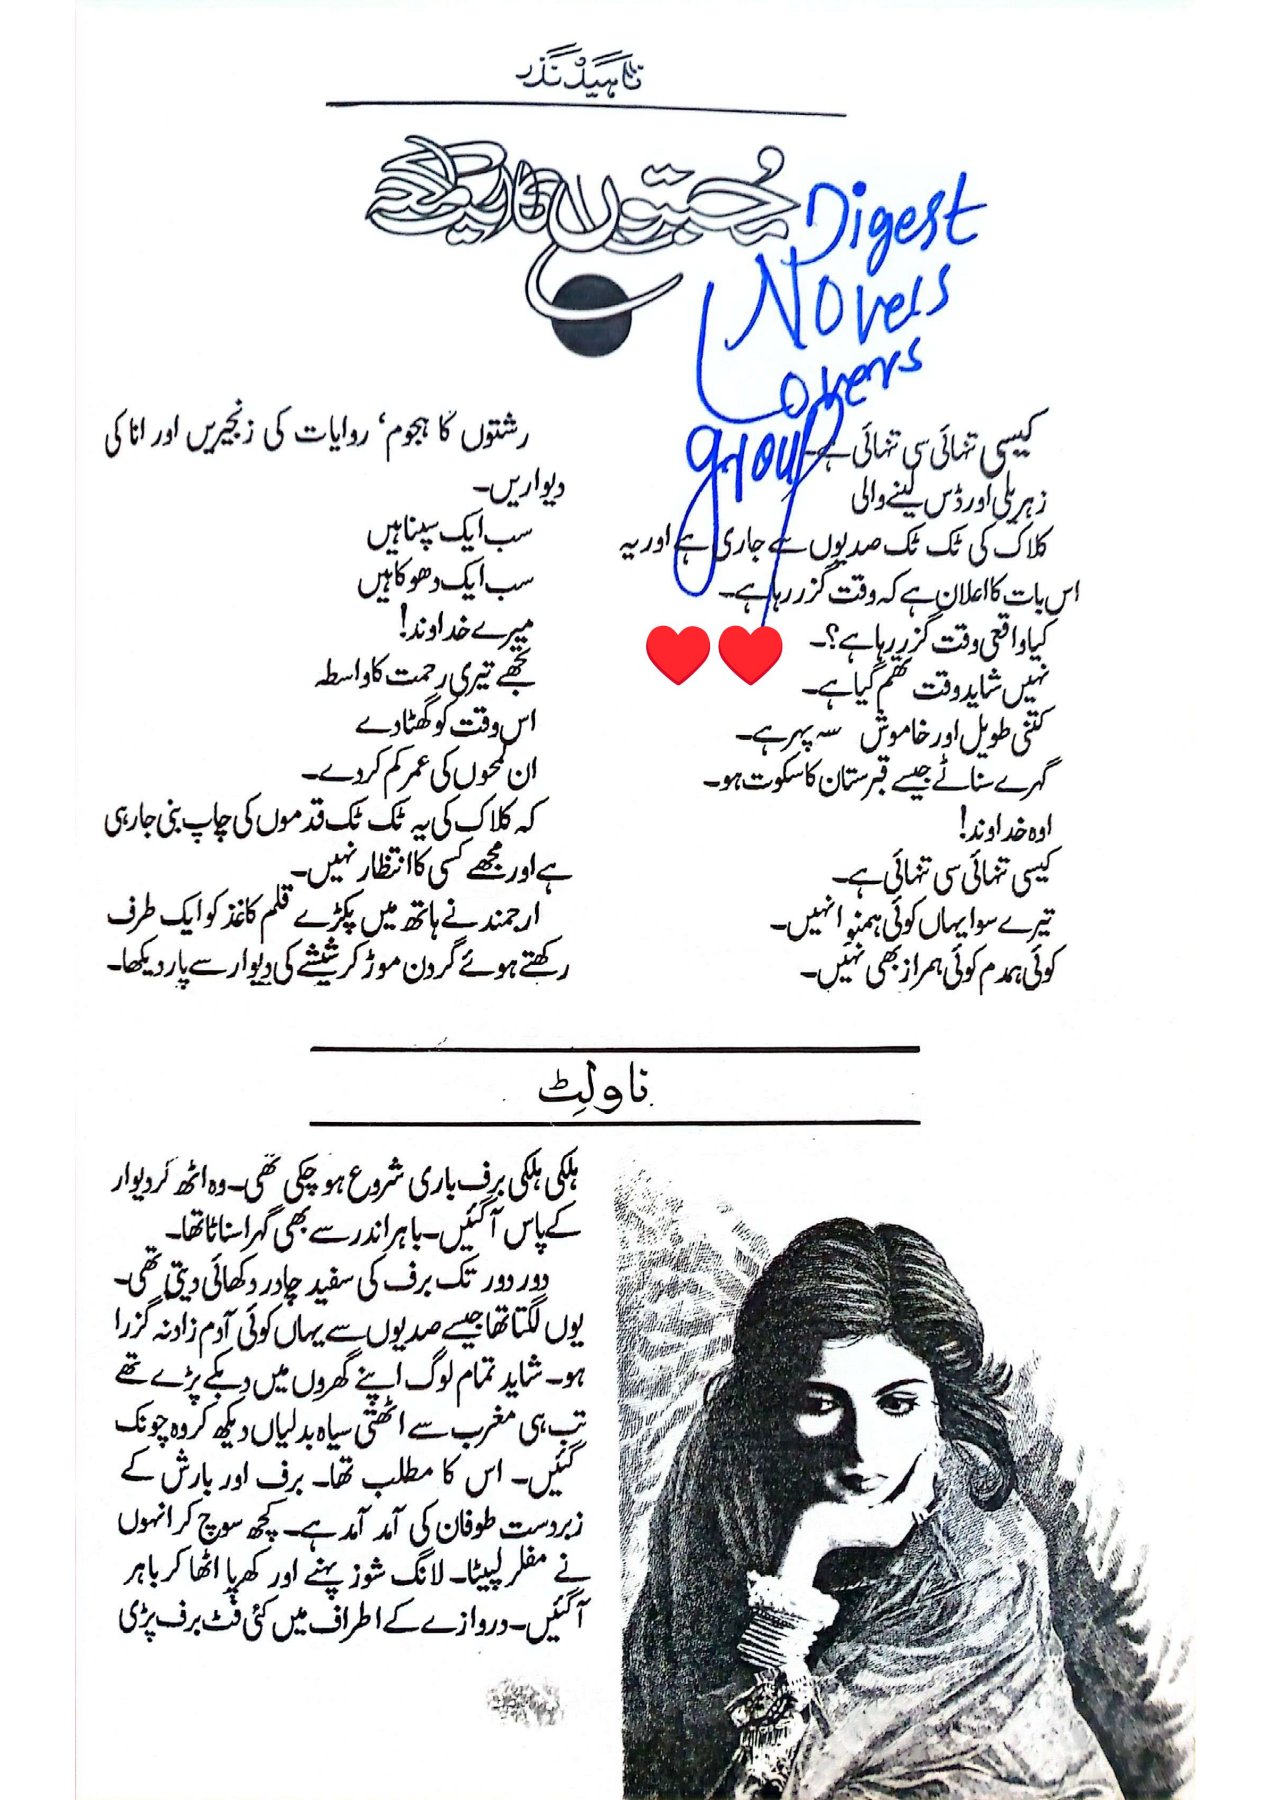 ناہید نذر
محبتوں کا رنگ
Digest
Novels
Lovers
group
کیسی تنہائی سی تنہائی ہے۔
زہریلی اور ڈس لینے والی
کلاک کی ٹک ٹک صدیوں سے جاری ہے اور یہ
اس بات کا اعلان ہے کہ وقت گزر رہا ہے۔
کیا واقعی وقت گزر رہا ہے؟۔
نہیں شاید وقت تھم گیا ہے۔
کتنی طویل اور خاموش سہ پہر ہے۔
گہرے سناٹے جیسے قبرستان کا سکوت ہو۔
اوہ خداوند!
کیسی تنہائی سی تنہائی ہے۔
تیرے سوا یہاں کوئی ہمنوا نہیں۔
کوئی ہمدم کوئی ہمراز بھی نہیں۔
رشتوں کا ہجوم، روایات کی زنجیریں اور انا کی
دیواریں۔
سب ایک سپنا ہیں
سب ایک دھوکا ہیں
میرے خداوند!
تجھے تیری رحمت کا واسطہ
اس وقت کو گھٹا دے
ان لمحوں کی عمر کم کر دے۔
کہ کلاک کی یہ ٹک ٹک قدموں کی چاپ بنی جا رہی
ہے اور مجھے کسی کا انتظار نہیں۔
ارجمند نے ہاتھ میں پکڑے قلم کاغذ کو ایک طرف
رکھتے ہوئے گردن موڑ کر شیشے کی دیوار سے پار دیکھا۔
ناولٹ
ہلکی ہلکی برف باری شروع ہو چکی تھی۔ وہ اٹھ کر دیوار
کے پاس آ گئیں۔ باہر اندر سے بھی گہرا سناٹا تھا۔
دور دور تک برف کی سفید چادر دکھائی دیتی تھی۔
یوں لگتا تھا جیسے صدیوں سے یہاں کوئی آدم زاد نہ گزرا
ہو۔ شاید تمام لوگ اپنے گھروں میں دبکے پڑے تھے
تب ہی مغرب سے اٹھتی سیاہ بدلیاں دیکھ کر وہ چونک
گئیں۔ اس کا مطلب تھا۔ برف اور بارش کے
زبردست طوفان کی آمد آمد ہے۔ کچھ سوچ کر انہوں
نے مفلر لپیٹا۔ لانگ شوز پہنے اور کھرپا اٹھا کر باہر
آ گئیں۔ دروازے کے اطراف میں کئی فٹ برف پڑی